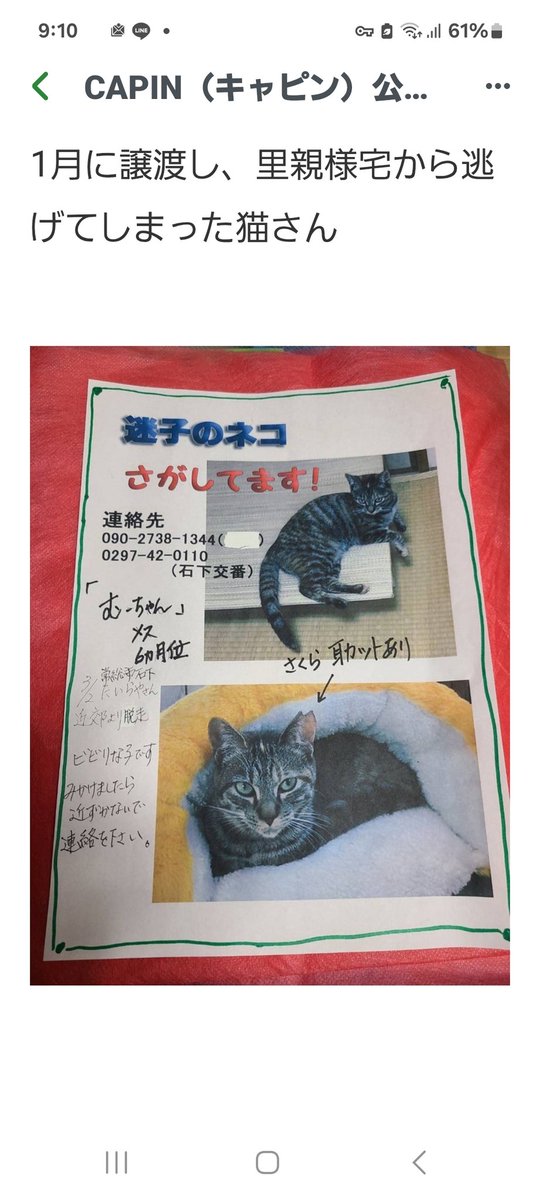 9:10
LINE
61%
CAPIN（キャピン）公...
1月に譲渡し、里親様宅から逃
げてしまった猫さん
迷子のネコ
さがしてます!
連絡先
090-2738-1344( )
0297-42-0110
（石下交番）
「むーちゃん」
メス
6カ月位
さくら耳カットあり
3/2 常総市石下
たいらやさん
近郊より脱走
ビビりな子です
みかけましたら
近ずかないで
連絡を下さい。